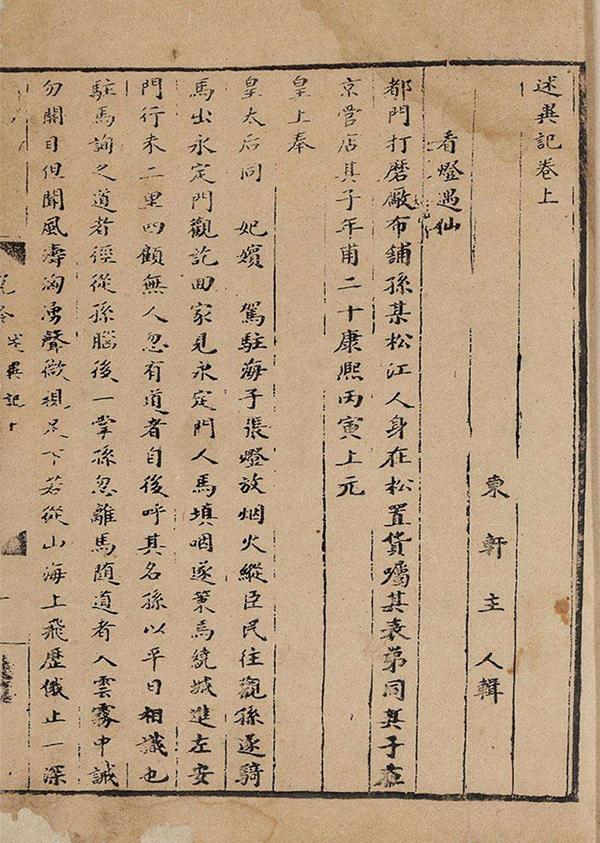 述異記卷上
東軒主人輯
看燈遇仙
都門打磨廠布鋪孫某松江人身在松置貨囑其表弟同其子在
京營店其子年甫二十康熙丙寅上元
皇上奉
皇太后同 妃嬪 駕駐海子張燈放烟火縱臣民往觀孫遂騎
馬出永定門觀訖回家見永定門人馬填咽遂策馬繞城進左安
門行未二里四顧無人忽有道者自後呼其名孫以平日相識也
駐馬詢之道者徑從孫腦後一掌孫忽離馬隨道者入雲霧中誡
勿開目但聞風濤洶湧聲微視足下若從山海上飛歷俄止一深
述異記